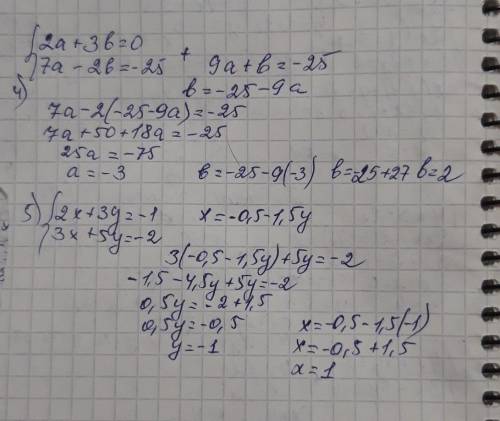 {2a+3b=0
7a-2b=-25 + 9a+b=-25
4) b=-25-9a
7a-2(-25-9a)=-25
7a+50+18a=-25
25a=-75
a=-3 b=-25-9(-3) b=-25+27 b=2
5) {2x+3y=-1 x=-0,5-1,5y
3x+5y=-2
3(-0,5-1,5y)+5y=-2
-1,5-4,5y+5y=-2
0,5y=-2+1,5
0,5y=-0,5 x=-0,5-1,5(-1)
y=-1 x=-0,5+1,5
x=1